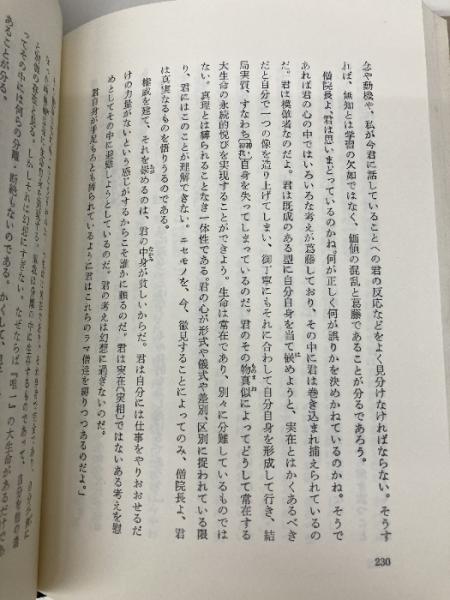 念や動機や、私が今君に話していることへの君の反応などをよく見分けなければならない。そうす
れば、無知とは学習の欠如ではなく、価値の混乱と葛藤であることが分るであろう。
僧院長よ、君は思いまどっているのかね、何が正しく何が誤りかを決めかねているのかね。そうで
あれば君の心の中ではいろいろな考えが葛藤しており、その中に君は巻き込まれ捕えられているの
だ。君は模倣者なのだよ。君は既成のある型に自分自身を当て嵌めようと、実在とはかくあるべき
だと自分で一つの像を造り上げてしまい、御丁寧にもそれに合わして自分自身を形成して行き、結
局実質、すなわち自身を失ってしまっているのだ。君のその物真似によってどうして常在する
大生命の永続的悦びを実現することができよう。生命は常在であり、別々に分離しているものでは
ない。真理とは縛られることなき一体性である。君の心が形式や儀式や差別、区別に捉われている限
り、君にはこのことが理解できない。ニセモノを、今、徹見することによってのみ、僧院長よ、君
は真実なるものを悟りうるのである。
権威を建て、それを崇めるのは、君の中身が貧しいからだ。君は自分には仕事をやりおおせるだ
けの力量がないという感じがするからこそ誰かに頼るのだ。君は実在(実相)ではないある考えを慰
めとしてその中に避難しようとしているのだ。君の考えは幻想に過ぎないのだ。
君自身が手足もろとも縛られているように君はこれらのラマ僧達を縛りつつあるのだよ。」
230
なぜならば『唯一』の大生命があるだけであ
ってその中には何らの分離、断絶もないのである。かくして、
あることが分る。